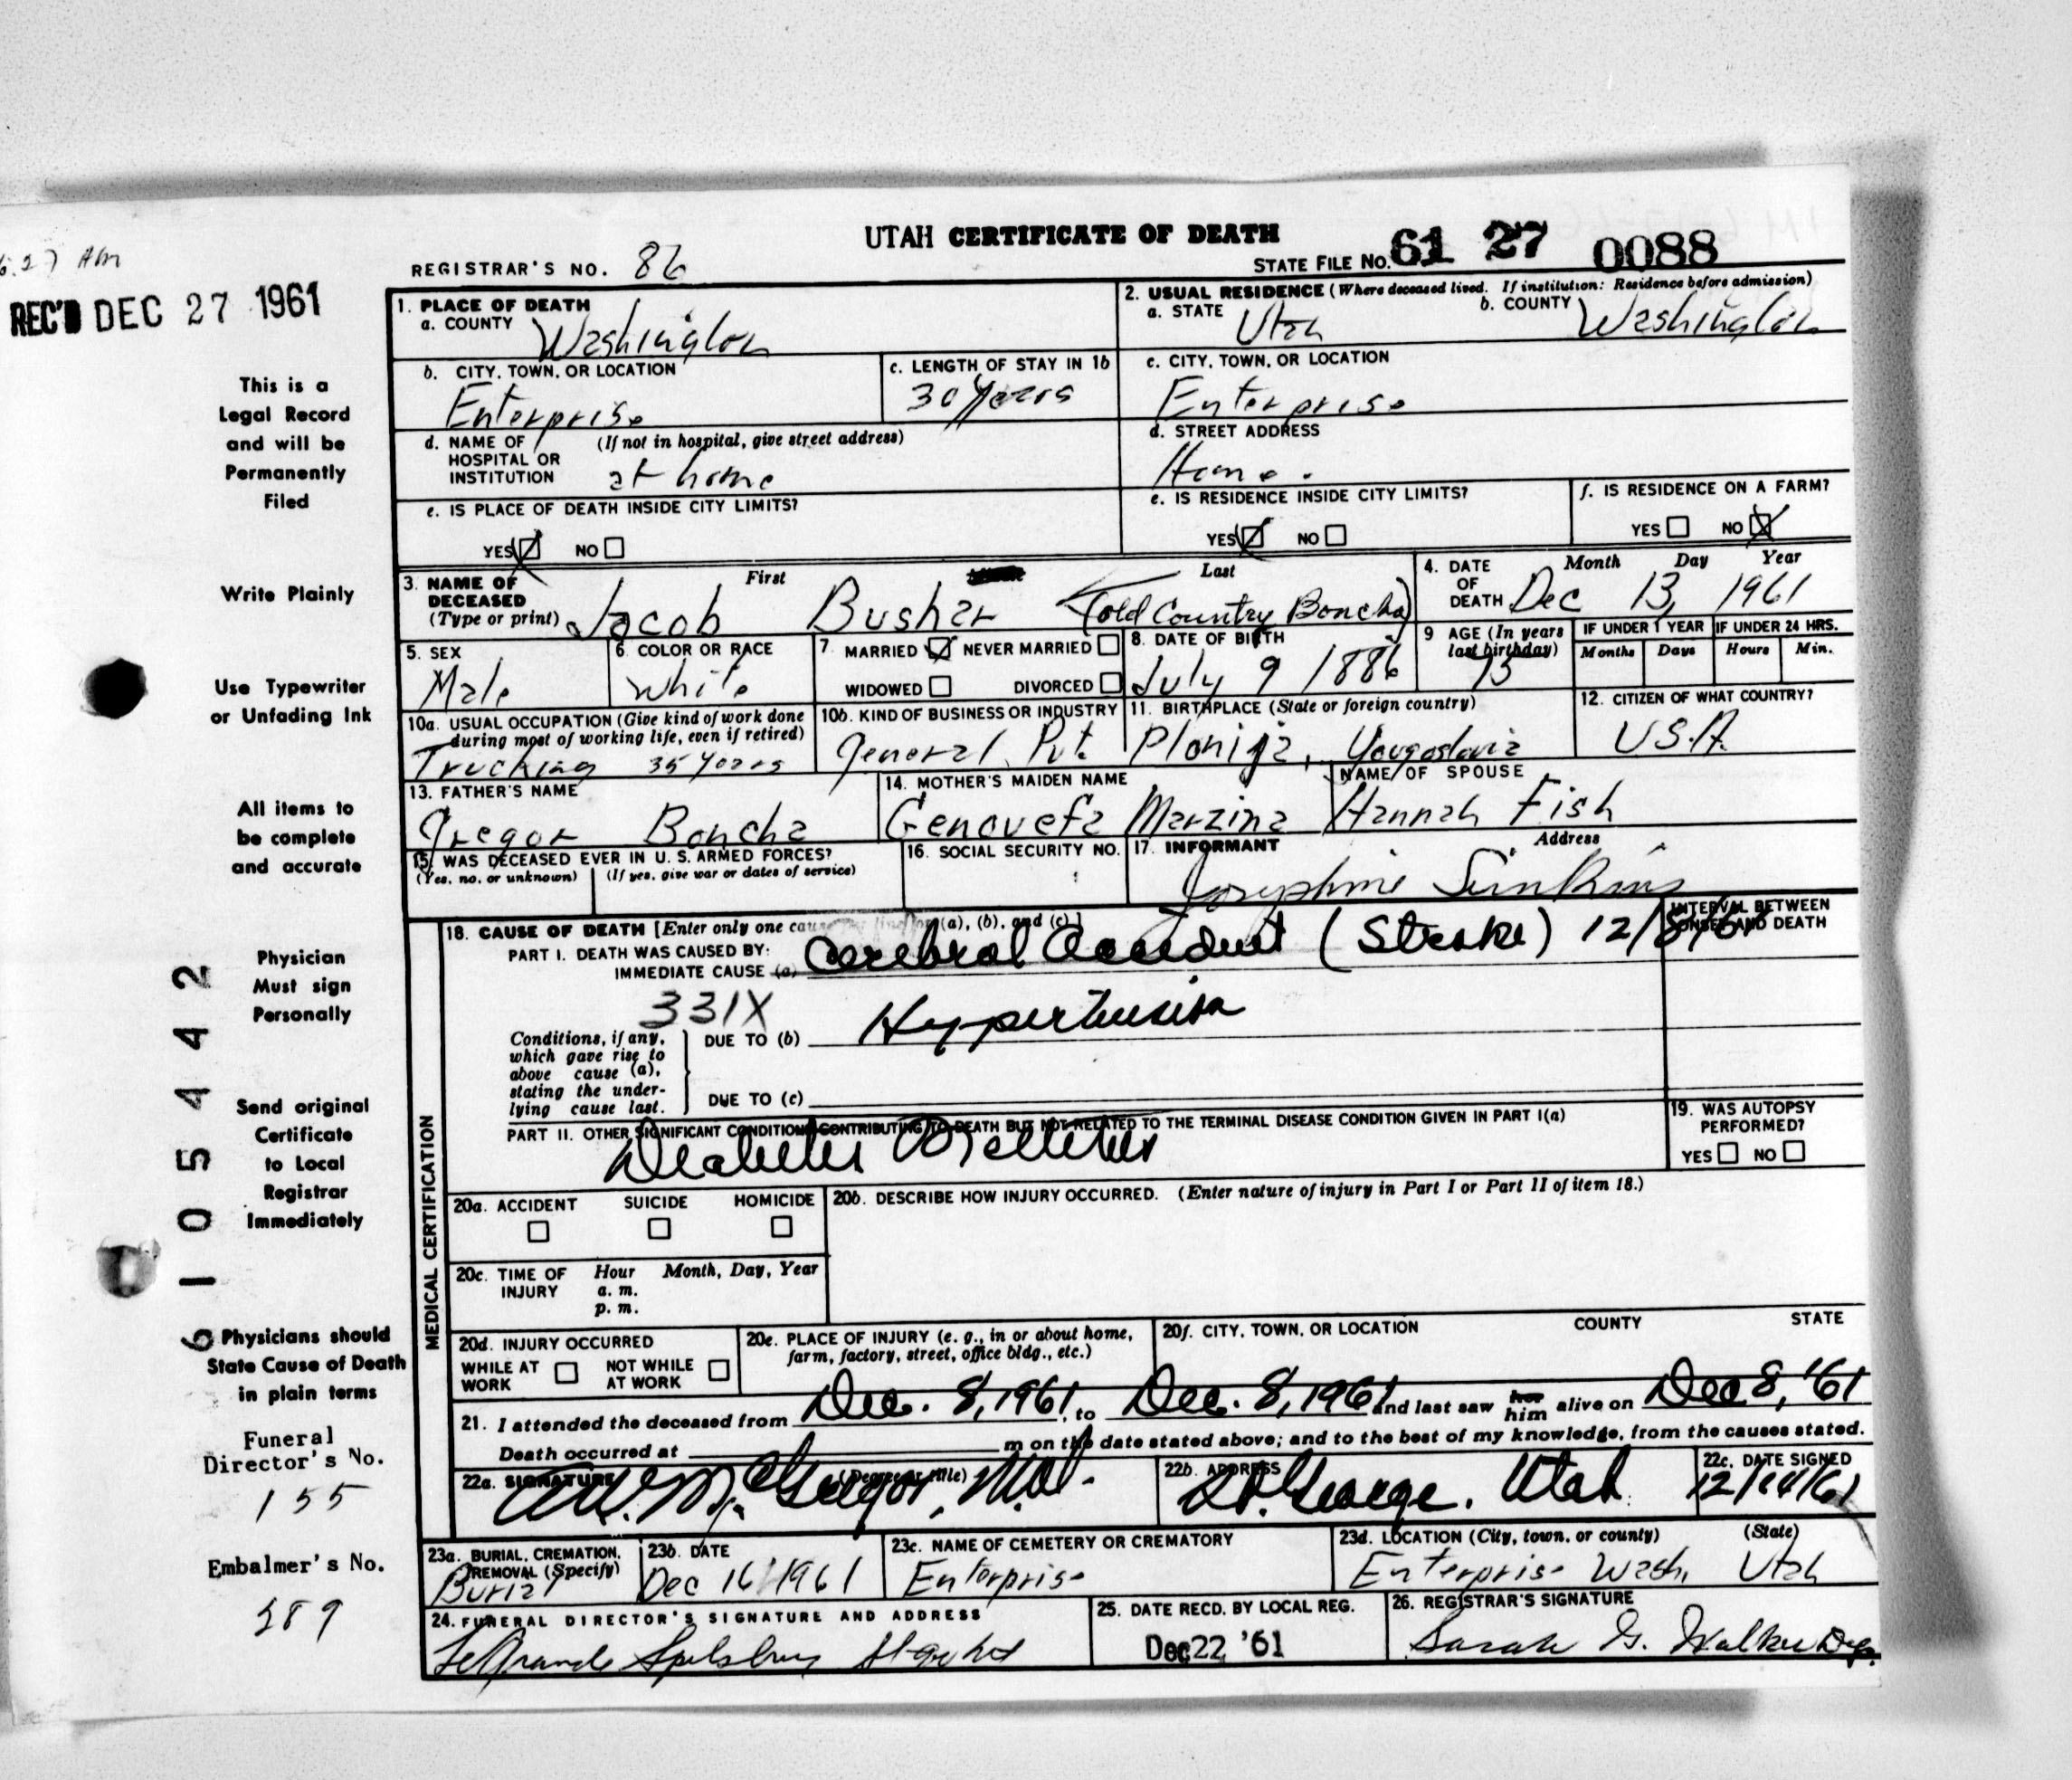 UTAH CERTIFICATE OF DEATH
REGISTRAR'S NO. 86
STATE FILE No. 61 27 0088
REC'D DEC 27 1961
1. PLACE OF DEATH
a. COUNTY Washington
2. USUAL RESIDENCE (Where deceased lived. If institution: Residence before admission)
a. STATE Utah b. COUNTY Washington
b. CITY, TOWN, OR LOCATION Enterprise
c. LENGTH OF STAY IN 1b 30 Years
c. CITY, TOWN, OR LOCATION Enterprise
d. NAME OF HOSPITAL OR INSTITUTION (If not in hospital, give street address) at home
d. STREET ADDRESS Home.
e. IS PLACE OF DEATH INSIDE CITY LIMITS?
YES NO
e. IS RESIDENCE INSIDE CITY LIMITS?
YES NO
f. IS RESIDENCE ON A FARM?
YES NO
3. NAME OF DECEASED (Type or print) First Last
Jacob Bushar (old Country Boncha)
4. DATE OF DEATH Month Day Year
Dec 13, 1961
5. SEX Male
6. COLOR OR RACE White
7. MARRIED NEVER MARRIED
WIDOWED DIVORCED
8. DATE OF BIRTH July 9 1886
9 AGE (In years last birthday) 75
IF UNDER 1 YEAR Months Days
IF UNDER 24 HRS. Hours Min.
10a. USUAL OCCUPATION (Give kind of work done during most of working life, even if retired)
Trucking 35 Years
10b. KIND OF BUSINESS OR INDUSTRY General Pvt.
11. BIRTHPLACE (State or foreign country) Plonija, Yougoslavia
12. CITIZEN OF WHAT COUNTRY? U.S.A.
13. FATHER'S NAME Gregor Boncha
14. MOTHER'S MAIDEN NAME Genovefa Marzina
NAME OF SPOUSE Hannah Fish
15. WAS DECEASED EVER IN U. S. ARMED FORCES?
(Yes, no, or unknown) (If yes, give war or dates of service)
16. SOCIAL SECURITY NO.
17. INFORMANT Address
Josephine Simkins
MEDICAL CERTIFICATION
18. CAUSE OF DEATH [Enter only one cause per line for (a), (b), and (c).]
INTERVAL BETWEEN ONSET AND DEATH
PART I. DEATH WAS CAUSED BY:
IMMEDIATE CAUSE (a) Cerebral Accident (Stroke) 12/8/61
331X
Conditions, if any, which gave rise to above cause (a), stating the underlying cause last.
DUE TO (b) Hypertension
DUE TO (c)
PART II. OTHER SIGNIFICANT CONDITIONS CONTRIBUTING TO DEATH BUT NOT RELATED TO THE TERMINAL DISEASE CONDITION GIVEN IN PART I(a)
Diabetes Mellitus
19. WAS AUTOPSY PERFORMED?
YES NO
20a. ACCIDENT SUICIDE HOMICIDE
20b. DESCRIBE HOW INJURY OCCURRED. (Enter nature of injury in Part I or Part II of item 18.)
20c. TIME OF INJURY Hour Month, Day, Year
a. m.
p. m.
20d. INJURY OCCURRED
WHILE AT WORK NOT WHILE AT WORK
20e. PLACE OF INJURY (e. g., in or about home, farm, factory, street, office bldg., etc.)
20f. CITY, TOWN, OR LOCATION COUNTY STATE
21. I attended the deceased from Dec. 8, 1961, to Dec. 8, 1961 and last saw her him alive on Dec 8, '61
Death occurred at m on the date stated above; and to the best of my knowledge, from the causes stated.
22a. SIGNATURE (Degree or title) A.W. McGregor, M.D.
22b. ADDRESS St. George, Utah
22c. DATE SIGNED
23a. BURIAL, CREMATION, REMOVAL (Specify) Burial
23b. DATE Dec 16 1961
23c. NAME OF CEMETERY OR CREMATORY Enterprise
23d. LOCATION (City, town, or county) (State)
Enterprise Wash. Utah
24. FUNERAL DIRECTOR'S SIGNATURE AND ADDRESS
25. DATE RECD. BY LOCAL REG. Dec 22 '61
26. REGISTRAR'S SIGNATURE
Sarah G. Walker Dep.
This is a
Legal Record
and will be
Permanently
Filed
Write Plainly
Use Typewriter
or Unfading Ink
All items to
be complete
and accurate
Physician
Must sign
Personally
Send original
Certificate
to Local
Registrar
Immediately
Physicians should
State Cause of Death
in plain terms
Funeral
Director's No.
155
Embalmer's No.
389
6 1 0 5 4 4 2